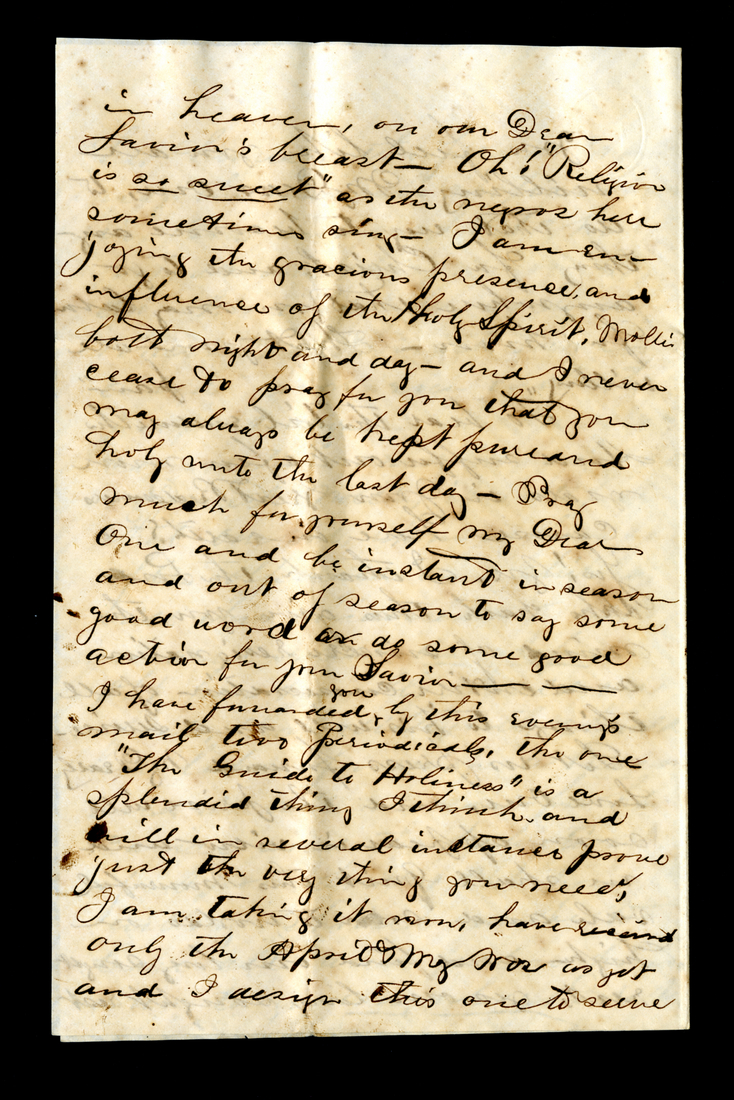 in heaven, on our Dear
Savior's breast— Oh! "Religion
is so sweet" as the negros here
sometimes sing— I am en-
joying the gracious presence, and
influence of the Holy Spirit, Mollie
both night and day— and I never
cease to pray for you that you
may always be kept pure and
holy unto the last day— Pray
much for yourself my Dear
One and be instant in season
and out of season to say some
good word or do some good
action for your Savior— —
I have forwarded you, by this evening's
mail two Periodicals, the one
"The Guide to Holiness" is a
splendid thing I think, and
will in several instances prove
just the very thing you need,
I am taking it now, have received
only the April & May Nos as yet
and I design this one to serve